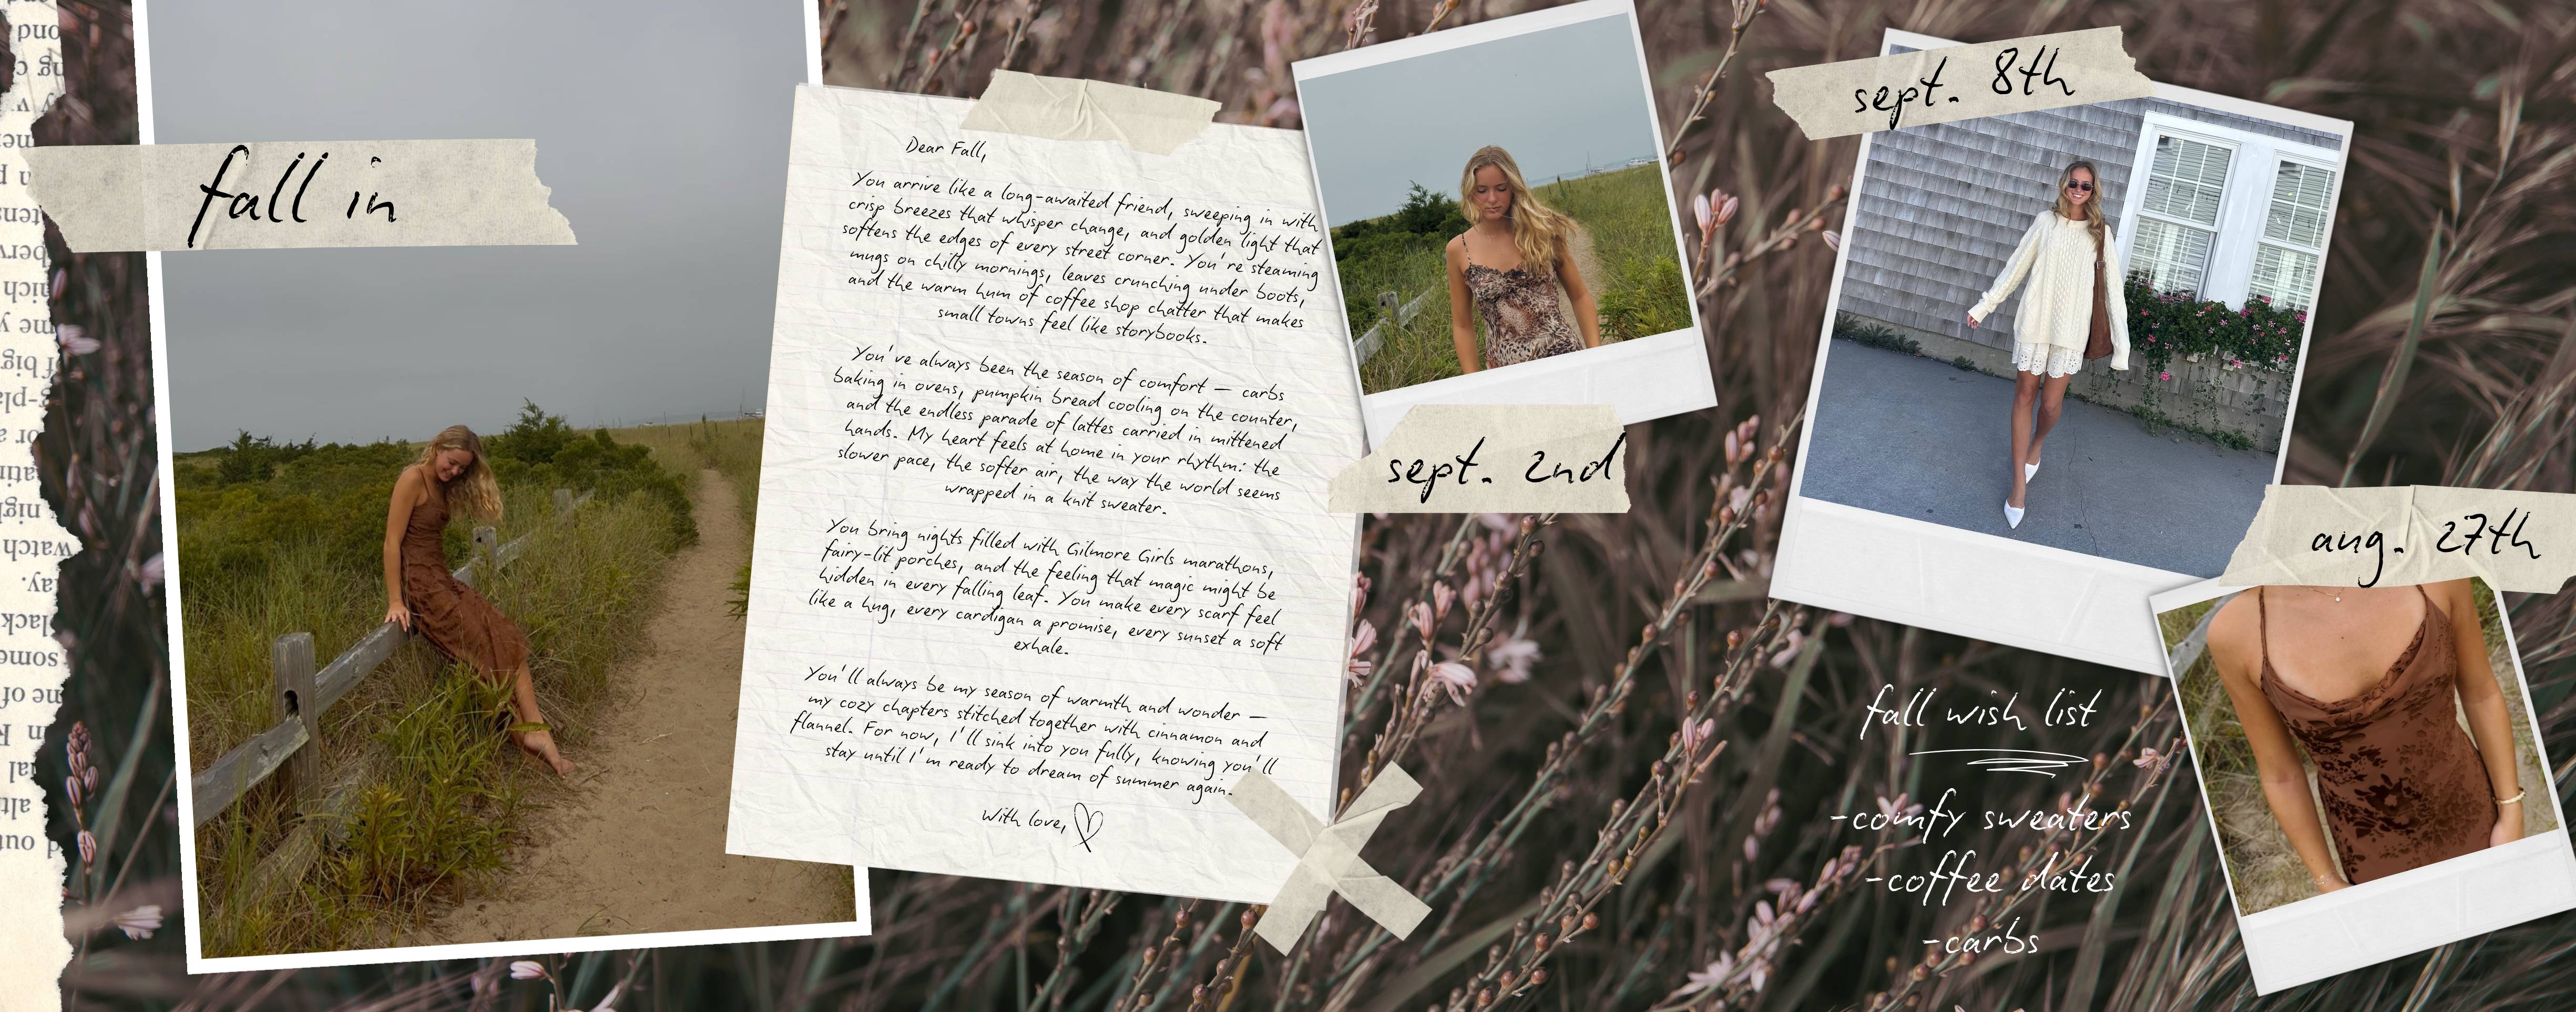 fall in
Dear Fall,
You arrive like a long-awaited friend, sweeping in with
crisp breezes that whisper change, and golden light that
softens the edges of every street corner. You're steaming
mugs on chilly mornings, leaves crunching under boots,
and the warm hum of coffee shop chatter that makes
small towns feel like storybooks.
You've always been the season of comfort — carbs
baking in ovens, pumpkin bread cooling on the counter,
and the endless parade of lattes carried in mittened
hands. My heart feels at home in your rhythm: the
slower pace, the softer air, the way the world seems
wrapped in a knit sweater.
You bring nights filled with Gilmore Girls marathons,
fairy-lit porches, and the feeling that magic might be
hidden in every falling leaf. You make every scarf feel
like a hug, every cardigan a promise, every sunset a soft
exhale.
You'll always be my season of warmth and wonder —
my cozy chapters stitched together with cinnamon and
flannel. For now, I'll sink into you fully, knowing you'll
stay until I'm ready to dream of summer again.
With love,
sept. 2nd
sept. 8th
aug. 27th
fall wish list
-comfy sweaters
-coffee dates
-carbs